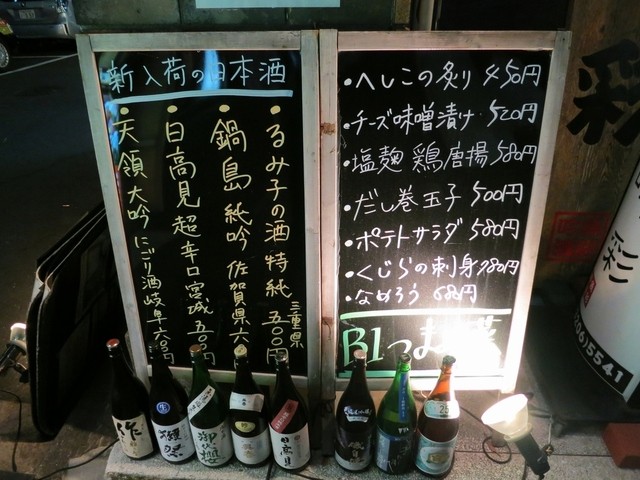 新入荷の日本酒
・るみ子の酒 特純 三重県 五〇〇円
・鍋島 純吟 佐賀県 六
・日高見 超辛口 宮城 五〇〇円
・天領 大吟 にごり酒 岐阜 六〇〇円
・へしこの炙り 450円
・チーズ味噌漬け 520円
・塩麹 鶏唐揚 580円
・だし巻玉子 500円
・ポテトサラダ 580円
・くじらの刺身 780円
・なめろう 680円
B1 つま
彩
彩
5541
作
獺祭
御前桜
日高見
25